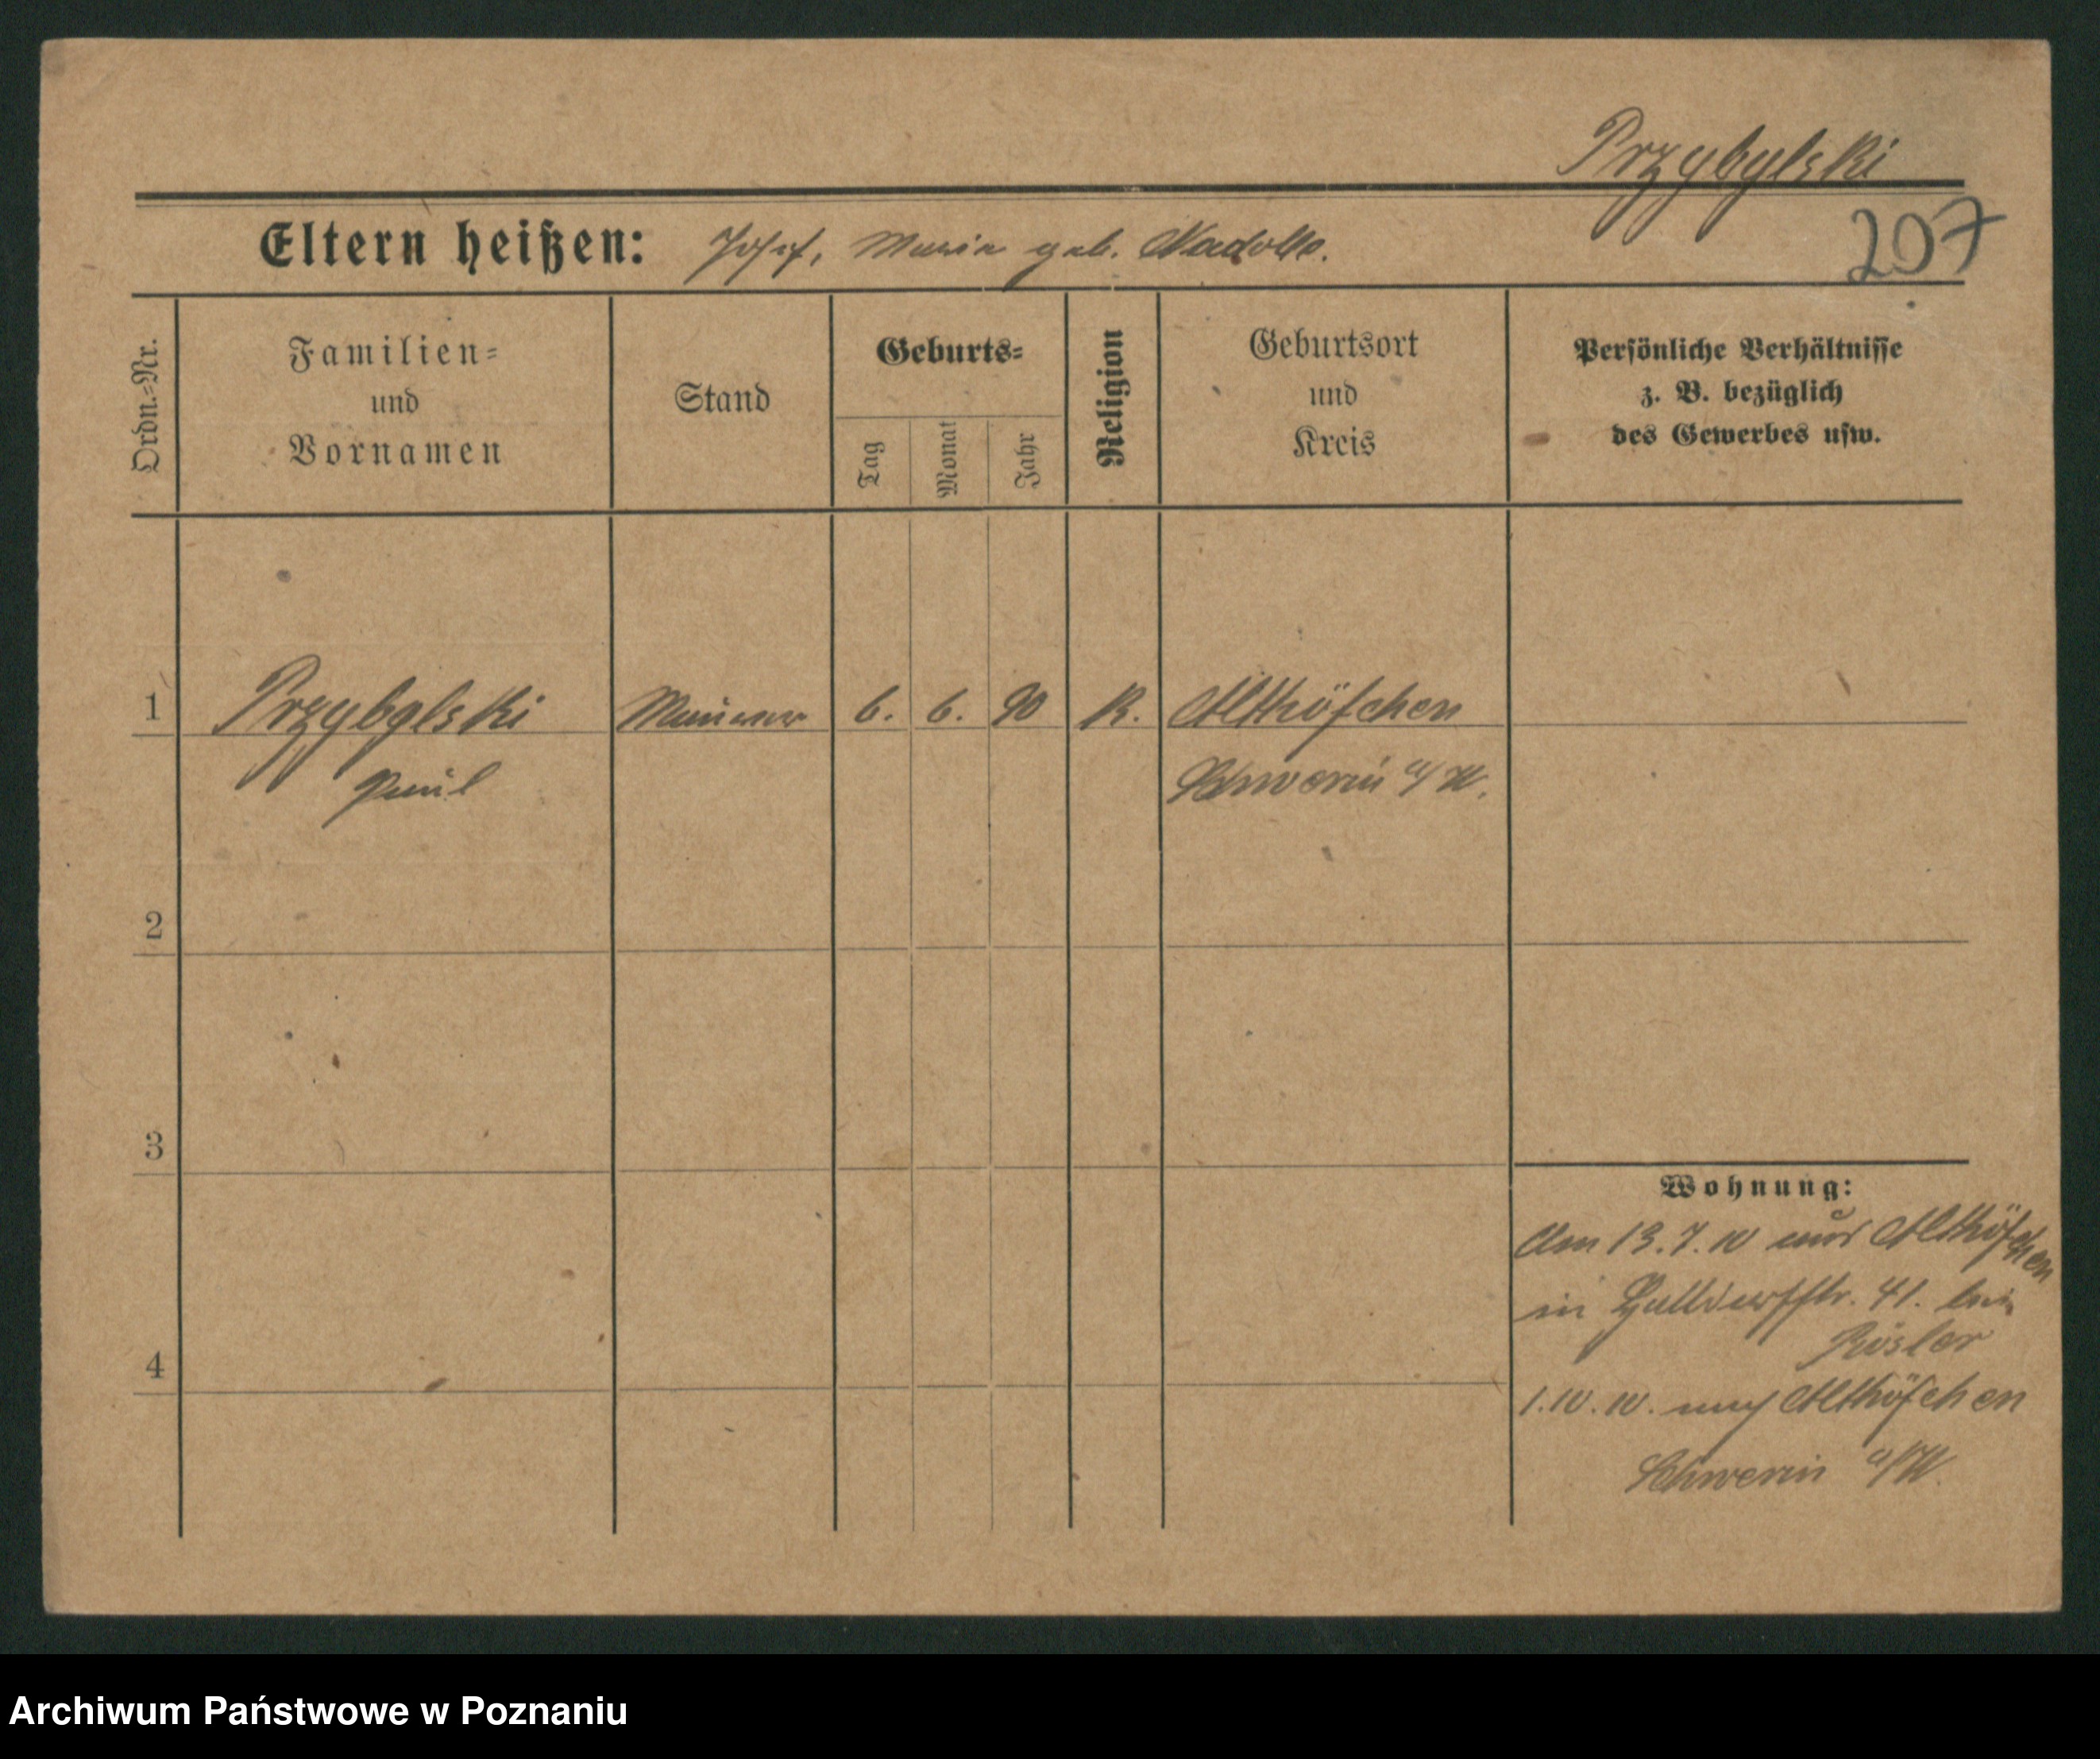 Przybylski
207
Eltern heißen: Josef, Maria geb. Nadolle.
Ordn.=Nr.
Familien=
und
Vornamen
Stand
Geburts=
Tag
Monat
Jahr
Religion
Geburtsort
und
Kreis
Persönliche Verhältnisse
z. B. bezüglich
des Gewerbes usw.
1 Przybylski Maurer 6. 6. 90 K. Althöfchen
Paul Schwerin a/W.
2
3
Wohnung:
Am 13.7.10 aus Althöfchen
in 41. bei
Rösler
4
1.10.10. nach Althöfchen
Schwerin a/W.
Archiwum Państwowe w Poznaniu